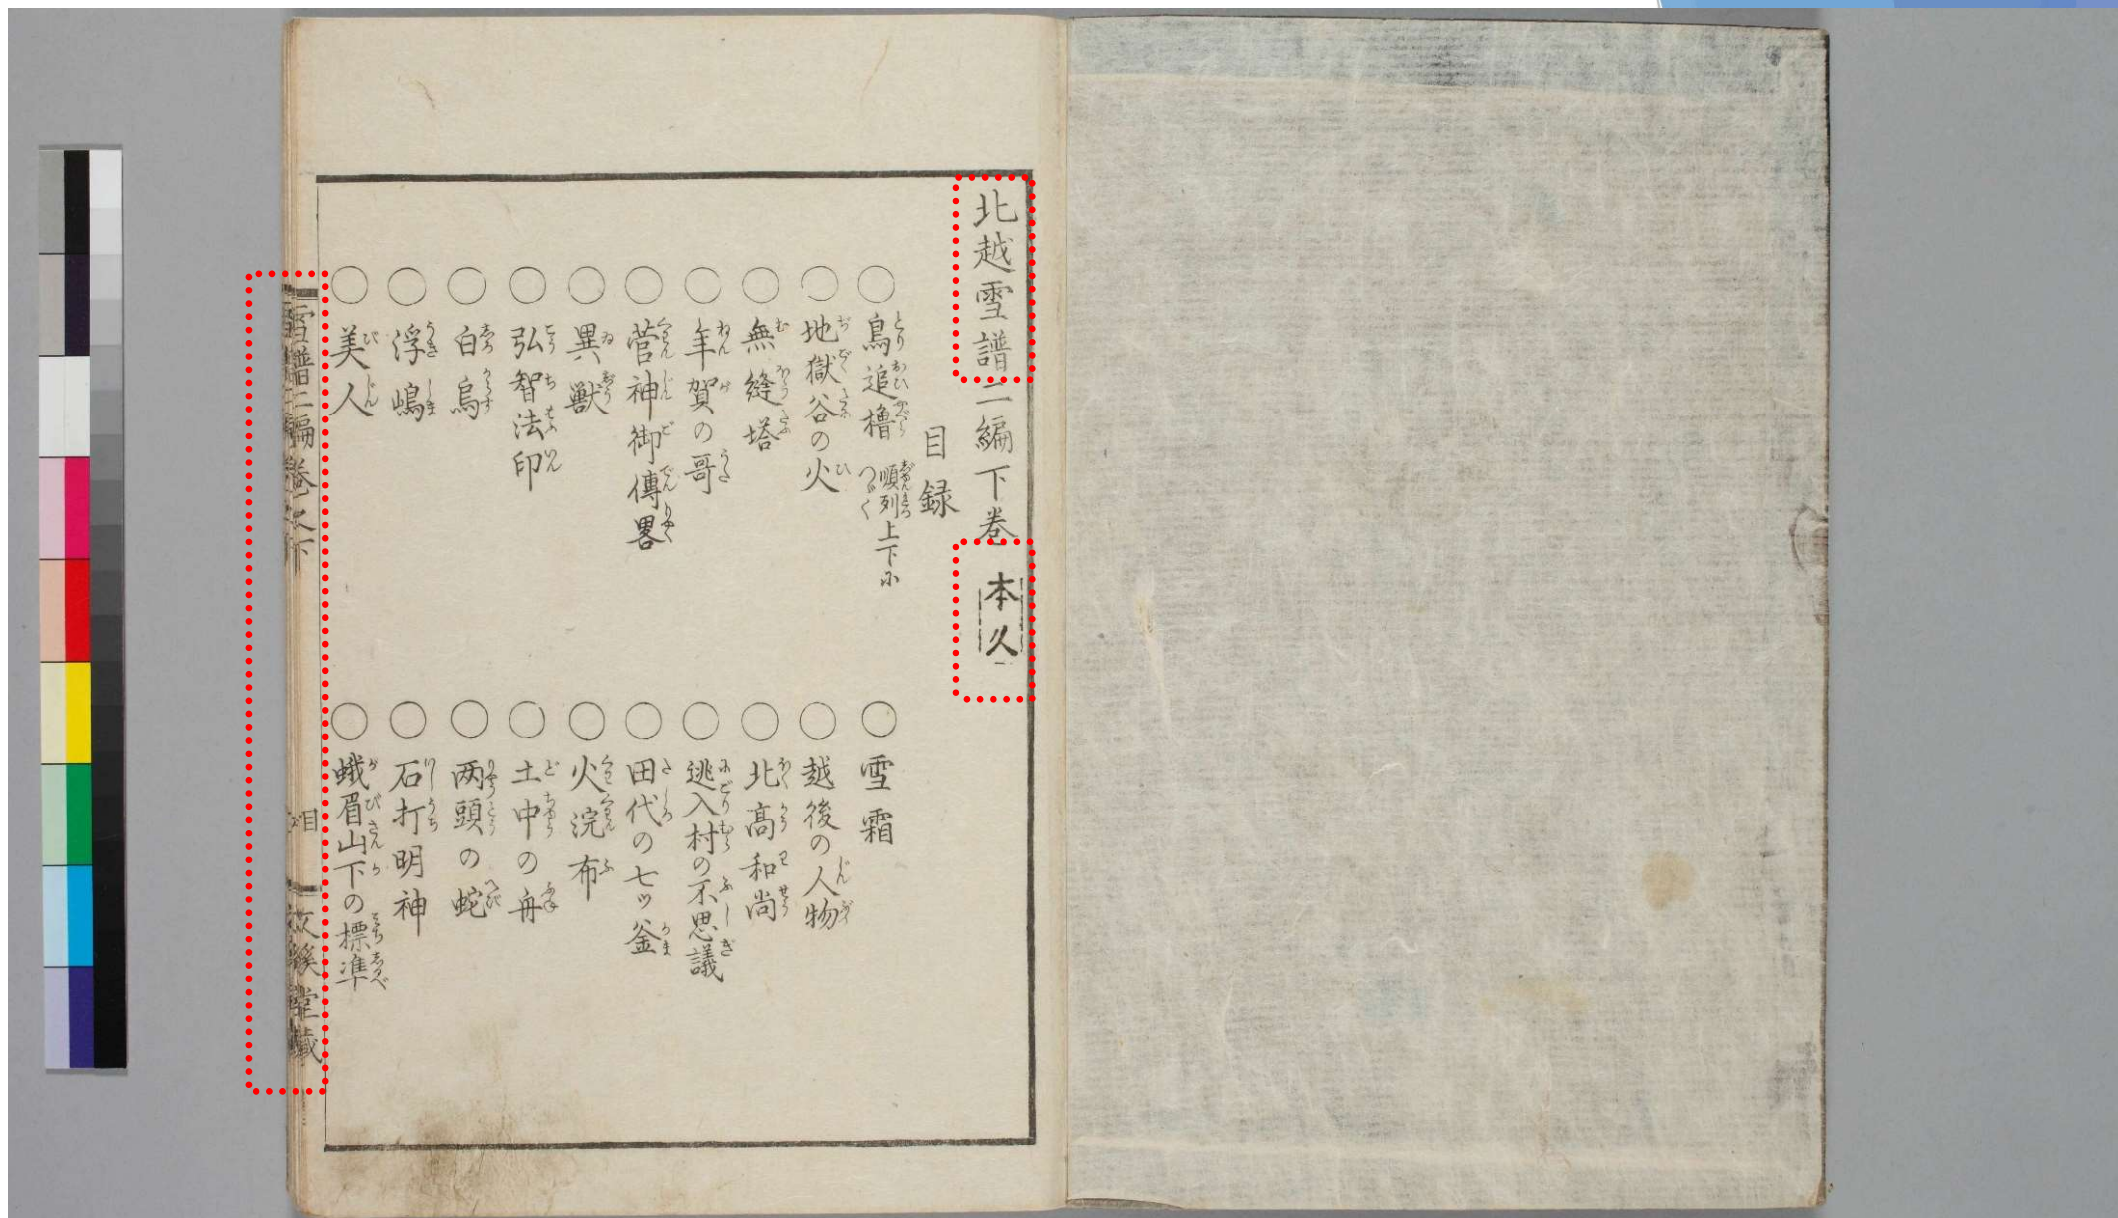 北越雪譜二編下巻
本久
目録
○鳥追櫓 順列上下に
つゞく
○地獄谷の火
○無縫塔
○年賀の哥
○菅神御傳畧
○異獣
○弘智法印
○白烏
○浮嶋
○美人
○雪霜
○越後の人物
○北高和尚
○逃入村の不思議
○田代の七ッ釜
○火浣布
○土中の舟
○両頭の蛇
○石打明神
○蛾眉山下の標準
雪譜二編巻之下
目
文渓堂蔵